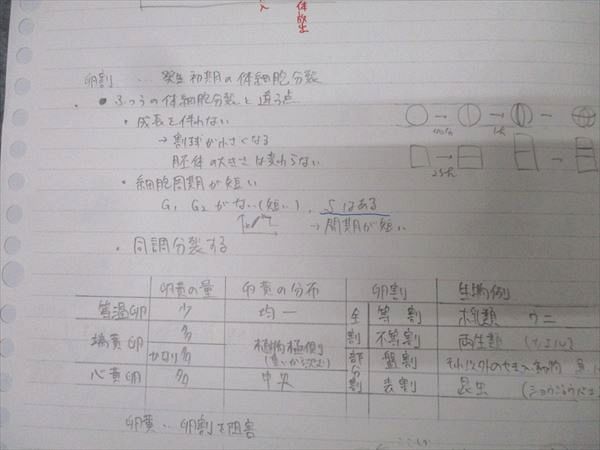 体放出
卵割 … 発生初期の体細胞分裂
• ふつうの体細胞分裂と違う点
・成長を伴わない
→ 割球が小さくなる
胚体の大きさは変わらない
・細胞周期が短い
G₁ G₂ がない(短い), Sはある
→ 間期が短い
・同調分裂する
卵黄の量 卵黄の分布 卵割 生物例
等黄卵 少 均一 全割 等割 ウニ
端黄卵 多 植物極側 不等割 両生類
かなり多 (重いから沈む) 部分割 盤割 それ以外の
心黄卵 多 中央 表割 昆虫 (ショウジョウバエ
卵黄‥卵割を阻害